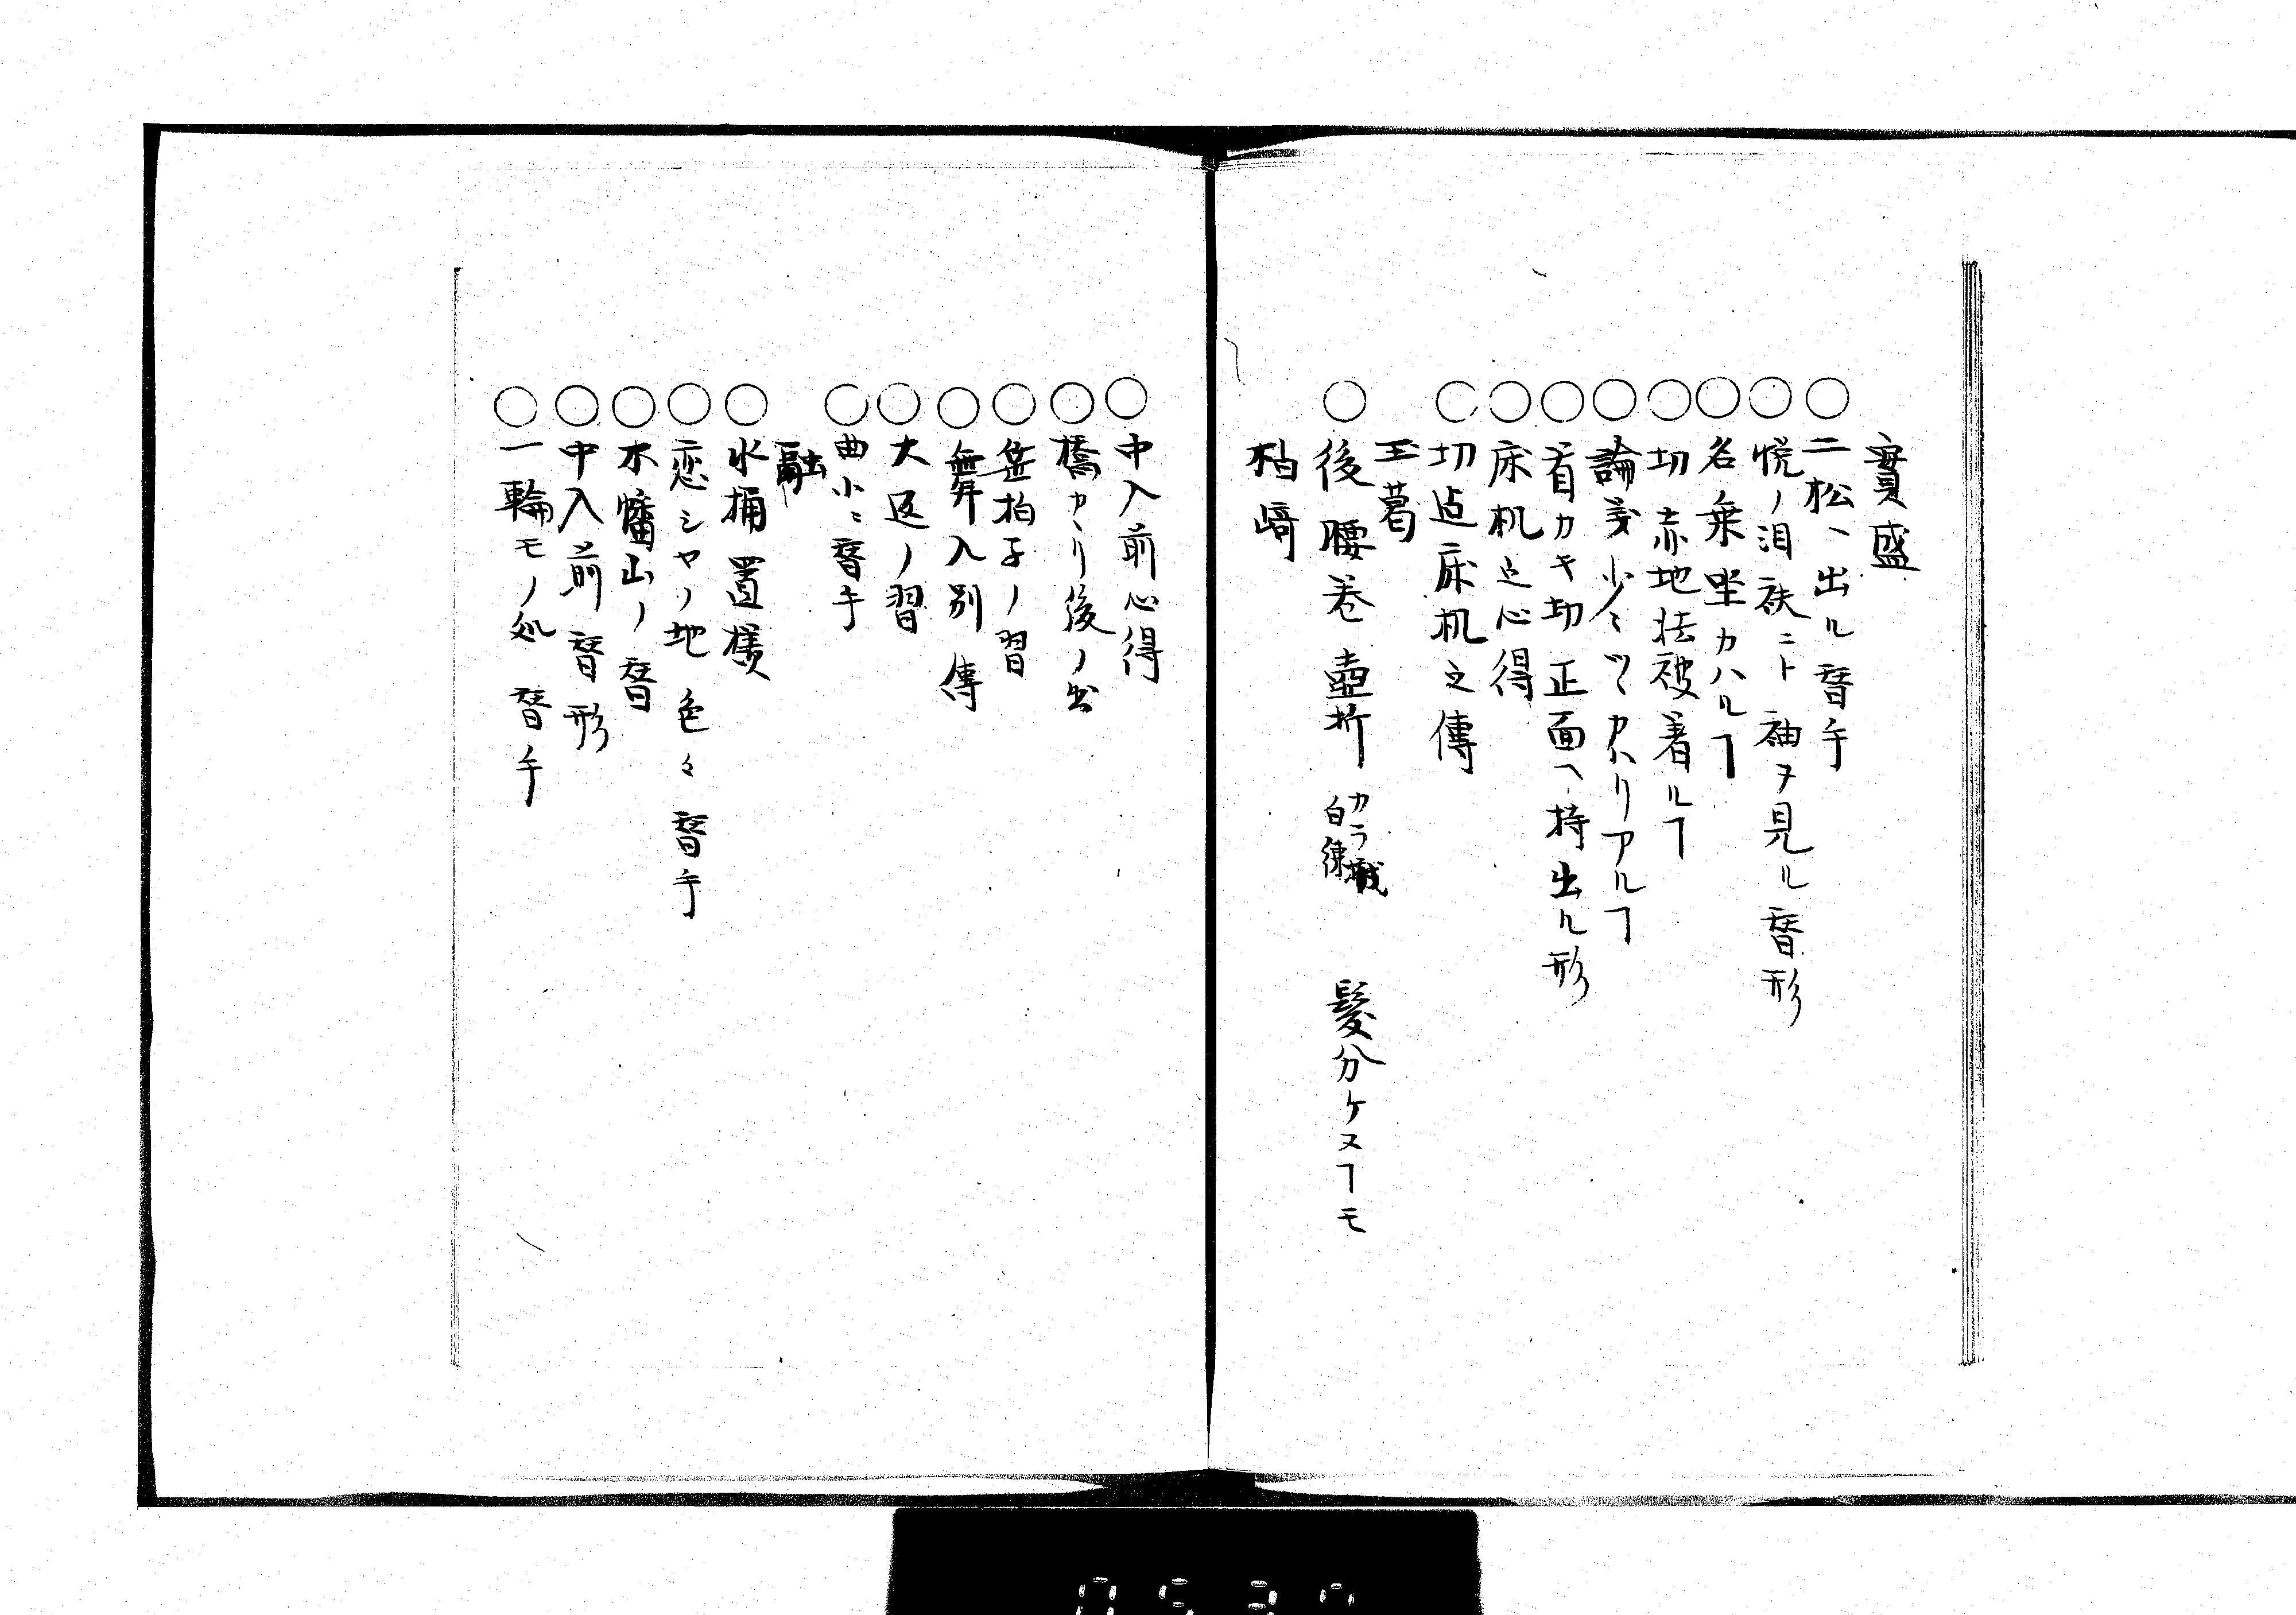 實盛
○二松ヘ出ル替手
○悦ノ泪袂ニト袖ヲ見ル替形
○名乗坐カハルヿ
○切赤地法被着ルヿ
○論義少〻ツヽカハリアルヿ
○首カキ切正面ヘ持出ル形
○床机之心得
○切迠床机之傳
玉葛
○後腰巻壺折 カラ織 白練 髪分ケヌヿモ
柏崎
○中入前心得
○橋カヽリ後ノ出
○笠拍子ノ習
○舞入別傳
○大返ノ習
○曲小〻替手
融
○水桶置様
○恋シヤノ地色々替手
○木幡山ノ替
○中入前替形
○一輪モノ処替手